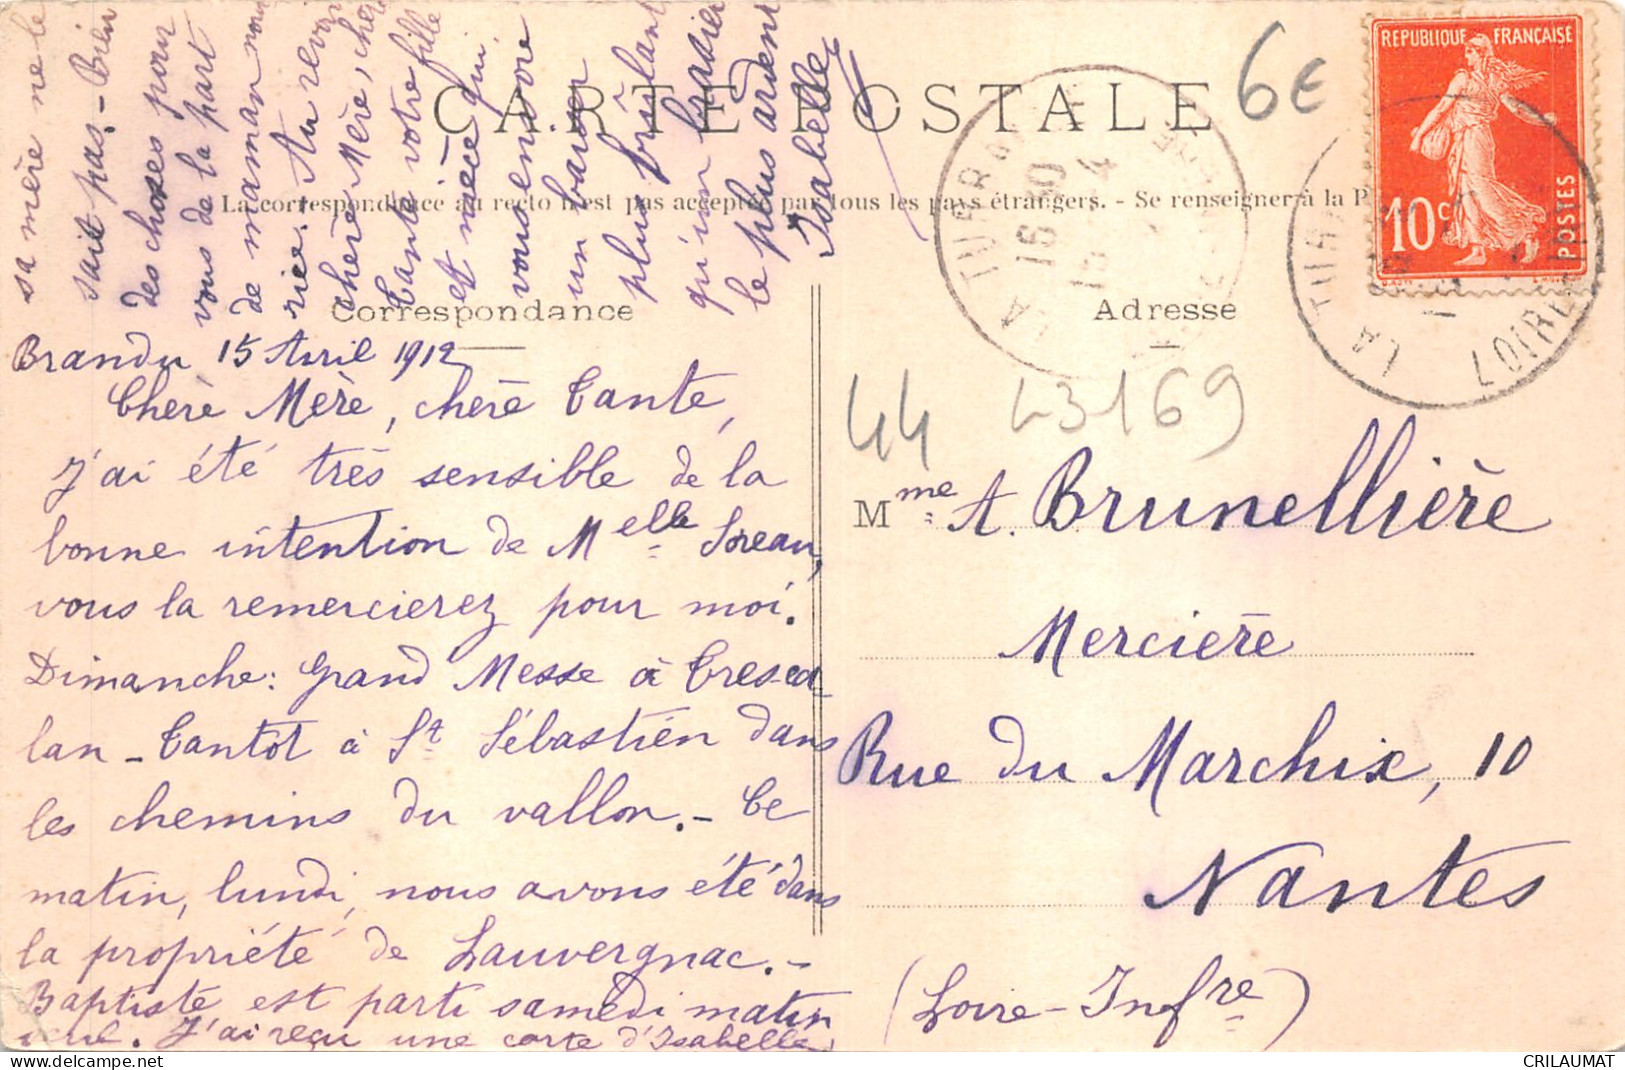 CARTE POSTALE
La correspondance au recto n'est pas acceptée par tous les pays étrangers. - Se renseigner à la P
Correspondance
Adresse
REPUBLIQUE FRANÇAISE
10c
POSTES
6€
LA TURBALLE
16 30
15 - 4
LA TUR
LOIRE-INF
44
43169
Brandu 15 Avril 1912
Chère Mère, chère Tante,
J'ai été très sensible de la
bonne intention de Melle Soreau,
vous la remercierez pour moi.
Dimanche: Grand Messe à Tresca
lan - Tantôt à St Sébastien dans
les chemins du vallon. - Ce
matin, lundi, nous avons été dans
la propriété de Lauvergnac. -
Baptiste est parti samedi matin
J'ai reçu une carte d'Isabelle,
sa mère ne le
sait pas. - Bien
des choses pour
vous de la part
de maman nour
rice. Au revoir
chère Mère, chère
tante votre fille
et nièce qui
vous envoie
un baiser
plus brûlant
qu'un brasier
le plus ardent
Isabelle
Mme A. Brunellière
Mercière
Rue du Marchix, 10
Nantes
(Loire-Infre)
CRILAUMAT